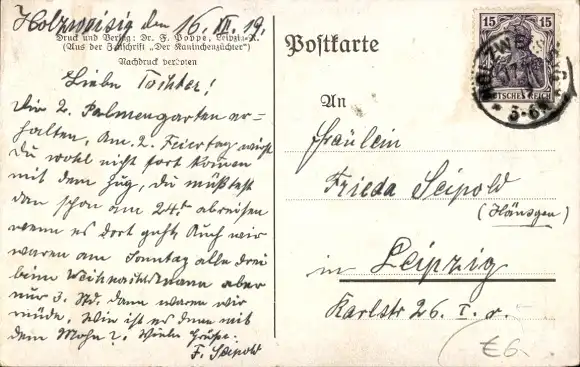 Holzweisig den 16. XII. 19.
Druck und Verlag: Dr. F. Poppe, Leipzig-R.
(Aus der Zeitschrift „Der Kaninchenzüchter“)
Nachdruck verboten
Liebe Tochter!
Die 2. Palmengarten er-
halten, Am 2. Feiertag wirst
Du wohl nicht fort komen
mit dem Zug, du müßtest
den schon am 24t abreisen
wenn es dort geht. Auch wir
waren am Sonntag alle drei
beim Weihnachtsmann aber
nur 3. Std. dann waren wir
müde. Wie ist es denn mit
dem Mohn?. Viele Grüße.
F. Seipold
Postkarte
An
Fräulein
Frieda Seipold
(Hänsgen)
in Leipzig
Karlstr 26. I. r.
15 15
DEUTSCHES REICH
HOLZW
17.
3-6
€6.